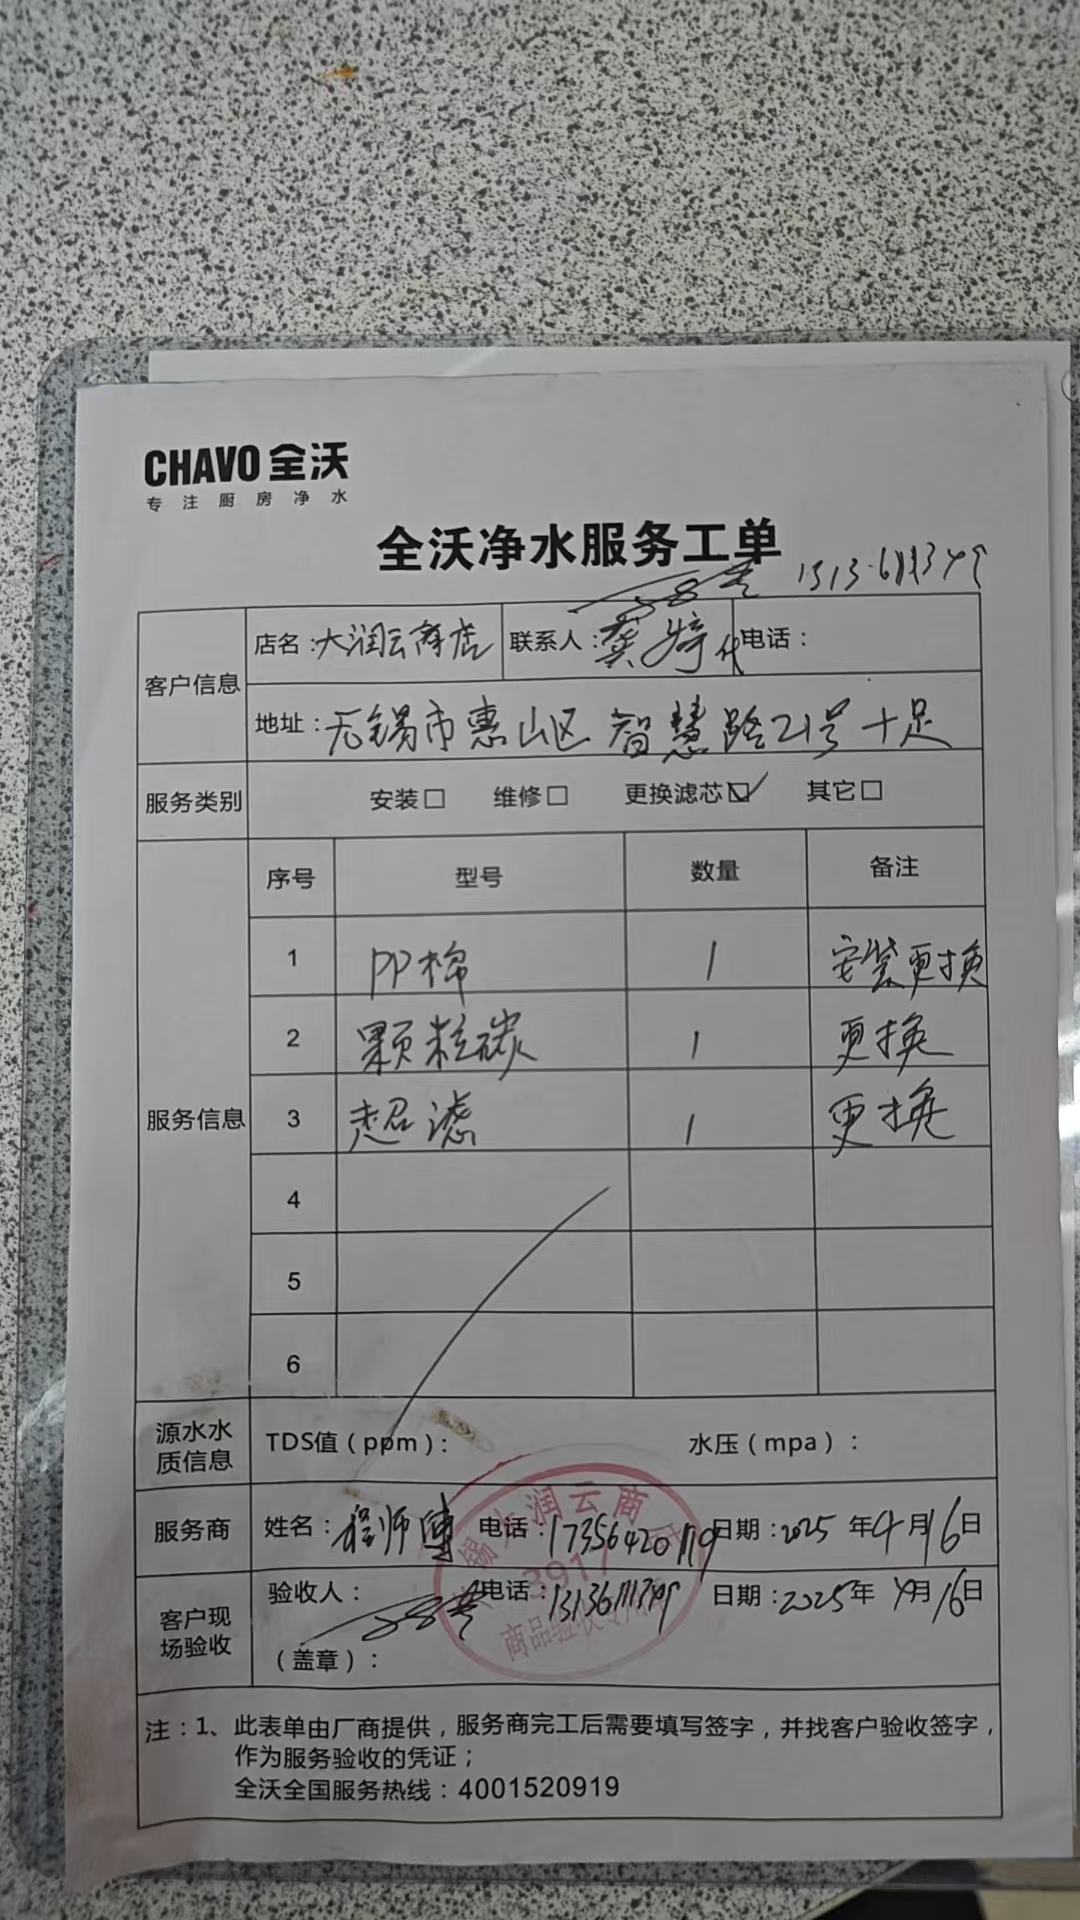 CHAVO 全沃
专注厨房净水
全沃净水服务工单
客户信息
店名：大润云商店 联系人：龚婷代 电话：
地址：无锡市惠山区智慧路21号十足
服务类别 安装□ 维修□ 更换滤芯☑ 其它□
服务信息
序号 型号 数量 备注
1 PP棉 1 安装更换
2 颗粒碳 1 更换
3 超滤 1 更换
4
5
6
源水水质信息 TDS值（ppm）： 水压（mpa）：
服务商 姓名：程师傅 电话：17356420119 日期：2025年4月16日
客户现场验收 验收人： 电话： 日期：2025年4月16日
（盖章）：
润云商
3917
商品验收专用
注：1、此表单由厂商提供，服务商完工后需要填写签字，并找客户验收签字，
作为服务验收的凭证；
全沃全国服务热线：4001520919